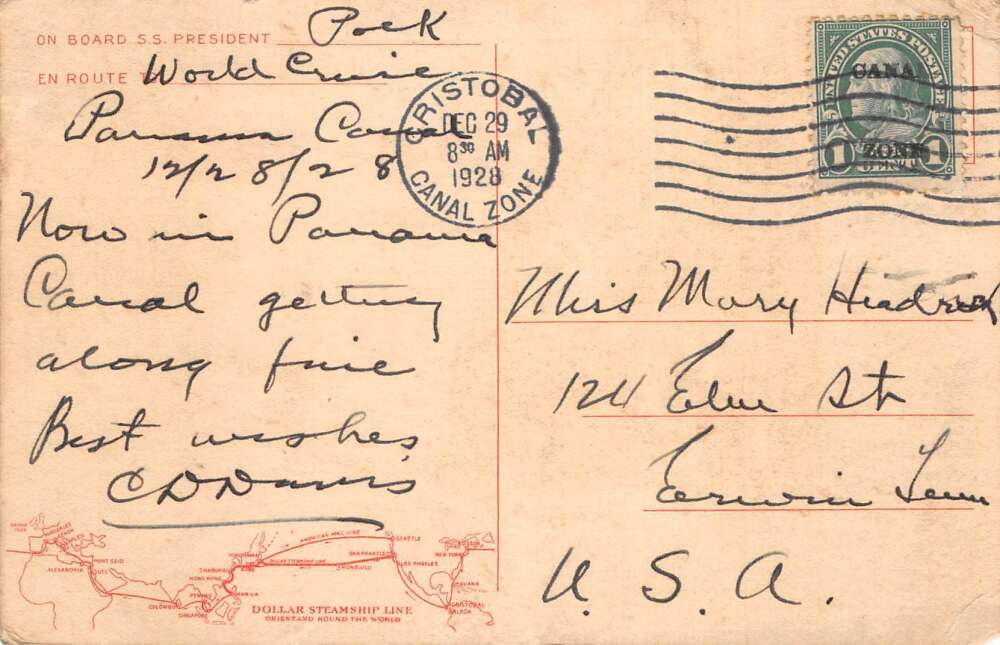 ON BOARD S.S. PRESIDENT Polk
EN ROUTE T World Cruise
Panama Canal
12/28/28
Now in Panama
Canal getting
along fine
Best wishes
C D Davis
CRISTOBAL
DEC 29
8 30 AM
1928
CANAL ZONE
UNITED STATES POSTAGE
CANAL
ZONE
1 1
Miss Mary Headrick
124 Elm St
Erwin Tenn
U. S. A.
AMERICAN MAIL LINE
SEATTLE
BOSTON
NEW YORK
SAN FRANCISCO
LOS ANGELES
DOLLAR STEAMSHIP LINE
HONOLULU
YOKOHAMA
KOBE
SHANGHAI
HONG KONG
MANILA
PENANG
SINGAPORE
COLOMBO
PORT SAID
SUEZ
ALEXANDRIA
NAPLES
GENOA
MARSEILLES
HAVANA
CRISTOBAL
BALBOA
DOLLAR STEAMSHIP LINE
ORIENT AND ROUND THE WORLD